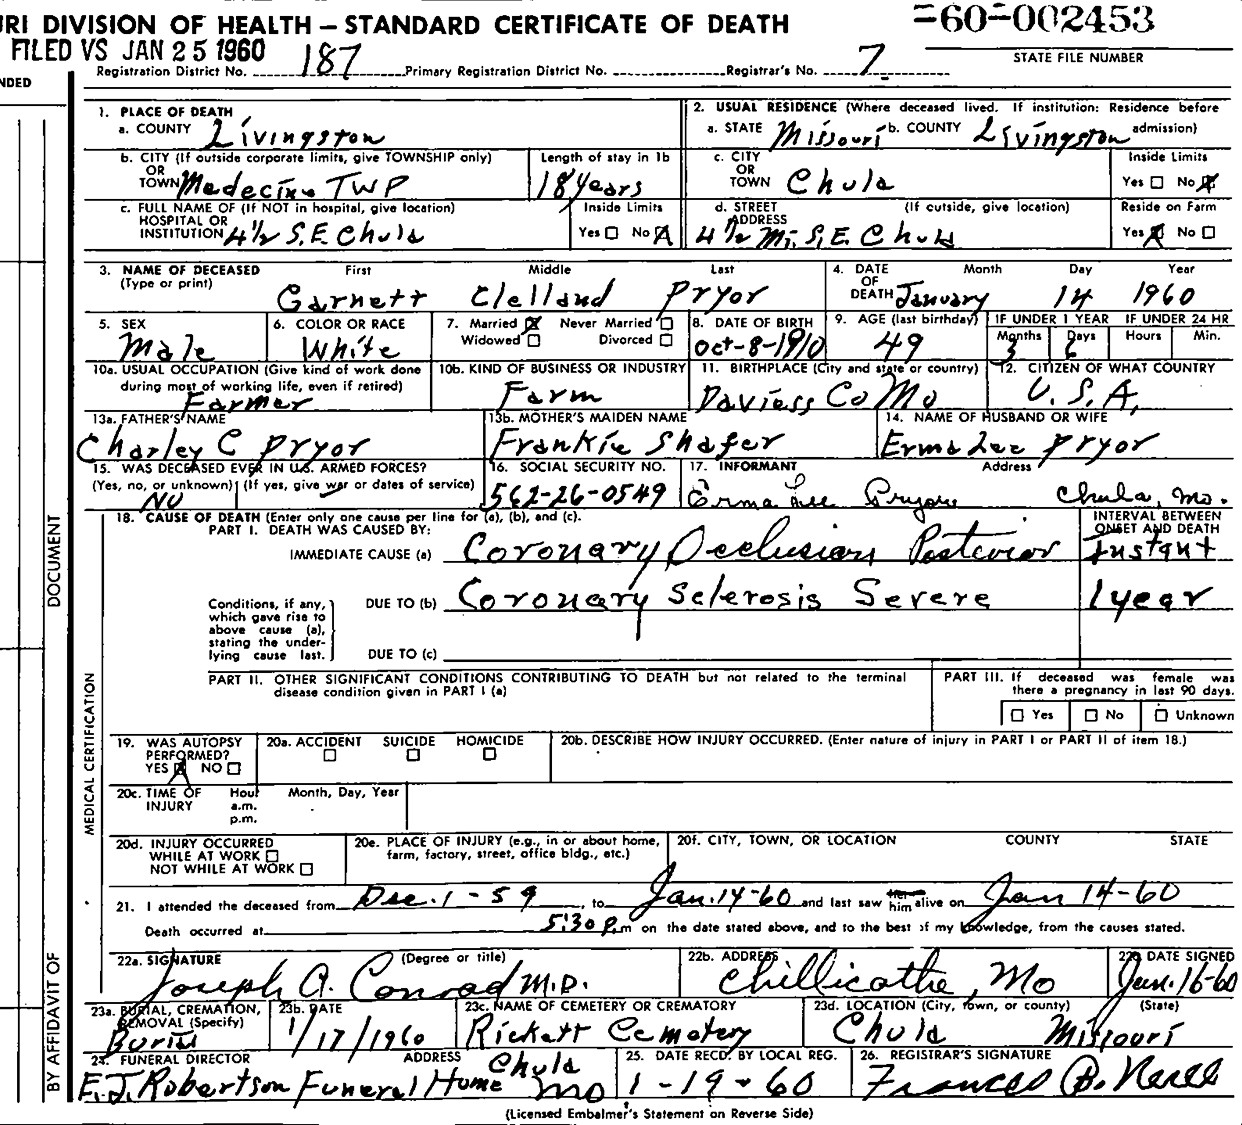 URI DIVISION OF HEALTH — STANDARD CERTIFICATE OF DEATH
=60=002453
FILED VS JAN 25 1960
STATE FILE NUMBER
Registration District No. 187 Primary Registration District No. Registrar's No. 7
NDED
1. PLACE OF DEATH
a. COUNTY Livingston
2. USUAL RESIDENCE (Where deceased lived. If institution: Residence before admission)
a. STATE Missouri b. COUNTY Livingston
b. CITY (If outside corporate limits, give TOWNSHIP only) OR TOWN Medecine TWP
Length of stay in 1b 18 Years
c. CITY OR TOWN Chula
Inside Limits Yes No X
c. FULL NAME OF (If NOT in hospital, give location) HOSPITAL OR INSTITUTION 4½ S.E. Chula
Inside Limits Yes No X
d. STREET ADDRESS (If outside, give location) 4½ Mi. S.E. Chula
Reside on Farm Yes X No
3. NAME OF DECEASED (Type or print) First Middle Last
Garnett Clelland Pryor
4. DATE OF DEATH Month Day Year
January 14 1960
5. SEX Male
6. COLOR OR RACE White
7. Married X Never Married Widowed Divorced
8. DATE OF BIRTH Oct-8-1910
9. AGE (last birthday) 49
IF UNDER 1 YEAR Months 3 Days 6
IF UNDER 24 HR Hours Min.
10a. USUAL OCCUPATION (Give kind of work done during most of working life, even if retired) Farmer
10b. KIND OF BUSINESS OR INDUSTRY Farm
11. BIRTHPLACE (City and state or country) Daviess Co Mo
12. CITIZEN OF WHAT COUNTRY U.S.A.
13a. FATHER'S NAME Charley C Pryor
13b. MOTHER'S MAIDEN NAME Frankie Shafer
14. NAME OF HUSBAND OR WIFE Erma Lee Pryor
15. WAS DECEASED EVER IN U.S. ARMED FORCES? (Yes, no, or unknown) (If yes, give war or dates of service) No
16. SOCIAL SECURITY NO. 562-26-0549
17. INFORMANT Address Erma Lee Pryor Chula, Mo.
18. CAUSE OF DEATH (Enter only one cause per line for (a), (b), and (c).
PART I. DEATH WAS CAUSED BY:
INTERVAL BETWEEN ONSET AND DEATH
IMMEDIATE CAUSE (a) Coronary Occlusion Posterior Instant
Conditions, if any, which gave rise to above cause (a), stating the underlying cause last.
DUE TO (b) Coronary Sclerosis Severe 1 year
DUE TO (c)
PART II. OTHER SIGNIFICANT CONDITIONS CONTRIBUTING TO DEATH but not related to the terminal disease condition given in PART I (a)
PART III. If deceased was female was there a pregnancy in last 90 days.
Yes No Unknown
19. WAS AUTOPSY PERFORMED? YES X NO
20a. ACCIDENT SUICIDE HOMICIDE
20b. DESCRIBE HOW INJURY OCCURRED. (Enter nature of injury in PART I or PART II of item 18.)
20c. TIME OF INJURY Hour a.m. p.m. Month, Day, Year
20d. INJURY OCCURRED WHILE AT WORK NOT WHILE AT WORK
20e. PLACE OF INJURY (e.g., in or about home, farm, factory, street, office bldg., etc.)
20f. CITY, TOWN, OR LOCATION COUNTY STATE
21. I attended the deceased from Dec. 1-59, to Jan. 14-60 and last saw her him alive on Jan 14-60
Death occurred at 5:30 P.m on the date stated above, and to the best of my knowledge, from the causes stated.
22a. SIGNATURE (Degree or title) Joseph A. Conrad M.D.
22b. ADDRESS Chillicothe, Mo
22c. DATE SIGNED Jan. 16-60
23a. BURIAL, CREMATION, REMOVAL (Specify) Burial
23b. DATE 1/17/1960
23c. NAME OF CEMETERY OR CREMATORY Rickett Cemetery
23d. LOCATION (City, town, or county) (State) Chula Missouri
24. FUNERAL DIRECTOR ADDRESS E.J. Robertson Funeral Home Chula Mo
25. DATE RECD. BY LOCAL REG. 1-19-60
26. REGISTRAR'S SIGNATURE Frances B.
(Licensed Embalmer's Statement on Reverse Side)
DOCUMENT
MEDICAL CERTIFICATION
BY AFFIDAVIT OF